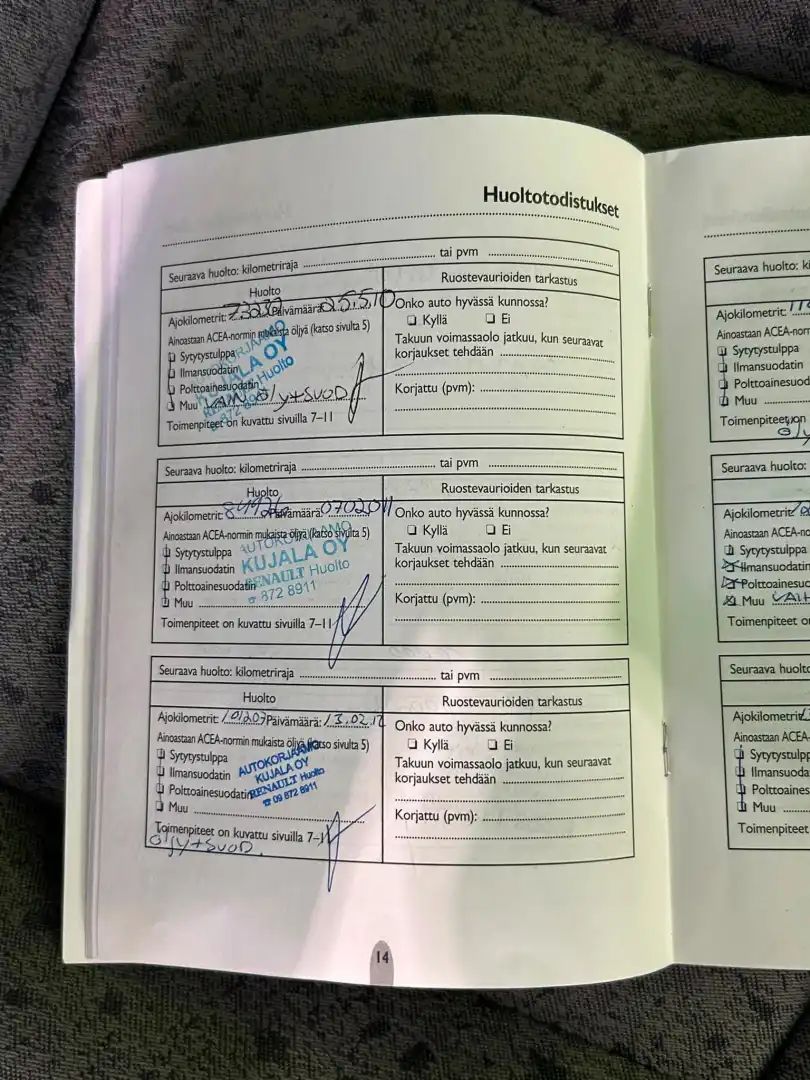 Huoltotodistukset
Seuraava huolto: kilometriraja tai pvm
Huolto
Ruostevaurioiden tarkastus
Ajokilometrit: 73232 Päivämäärä: 25.5.10
Ainoastaan ACEA-normin mukaista öljyä (katso sivulta 5)
Sytytystulppa
Ilmansuodatin
Polttoainesuodatin
Muu VAIN öljy+SUOD
Toimenpiteet on kuvattu sivuilla 7–11
KUJALA OY
Huolto
Onko auto hyvässä kunnossa?
Kyllä Ei
Takuun voimassaolo jatkuu, kun seuraavat
korjaukset tehdään
Korjattu (pvm):
Seuraava huolto: kilometriraja tai pvm
Huolto
Ruostevaurioiden tarkastus
Ajokilometrit: Päivämäärä: 0702011
Ainoastaan ACEA-normin mukaista öljyä (katso sivulta 5)
Sytytystulppa
Ilmansuodatin
Polttoainesuodatin
Muu
Toimenpiteet on kuvattu sivuilla 7–11
AUTOKORJAAMO
KUJALA OY
RENAULT Huolto
☎ 872 8911
Onko auto hyvässä kunnossa?
Kyllä Ei
Takuun voimassaolo jatkuu, kun seuraavat
korjaukset tehdään
Korjattu (pvm):
Seuraava huolto: kilometriraja tai pvm
Huolto
Ruostevaurioiden tarkastus
Ajokilometrit: 101207 Päivämäärä: 13.02.12
Ainoastaan ACEA-normin mukaista öljyä (katso sivulta 5)
Sytytystulppa
Ilmansuodatin
Polttoainesuodatin
Muu
Toimenpiteet on kuvattu sivuilla 7–11
öljy+SUOD.
AUTOKORJAAMO
KUJALA OY
RENAULT Huolto
☎ 09 872 8911
Onko auto hyvässä kunnossa?
Kyllä Ei
Takuun voimassaolo jatkuu, kun seuraavat
korjaukset tehdään
Korjattu (pvm):
14
Seuraava huolto: ki
Ajokilometrit:
Ainoastaan ACEA-norm
Sytytystulppa
Ilmansuodatin
Polttoainesuod
Muu
Toimenpiteet on
Seuraava huolto:
Ajokilometrit:
Ainoastaan ACEA-no
Sytytystulppa
Ilmansuodatin
Polttoainesuo
Muu
Toimenpiteet o
Seuraava huolto
Ajokilometrit
Ainoastaan ACEA-
Sytytystulpp
Ilmansuoda
Polttoaines
Muu
Toimenpiteet